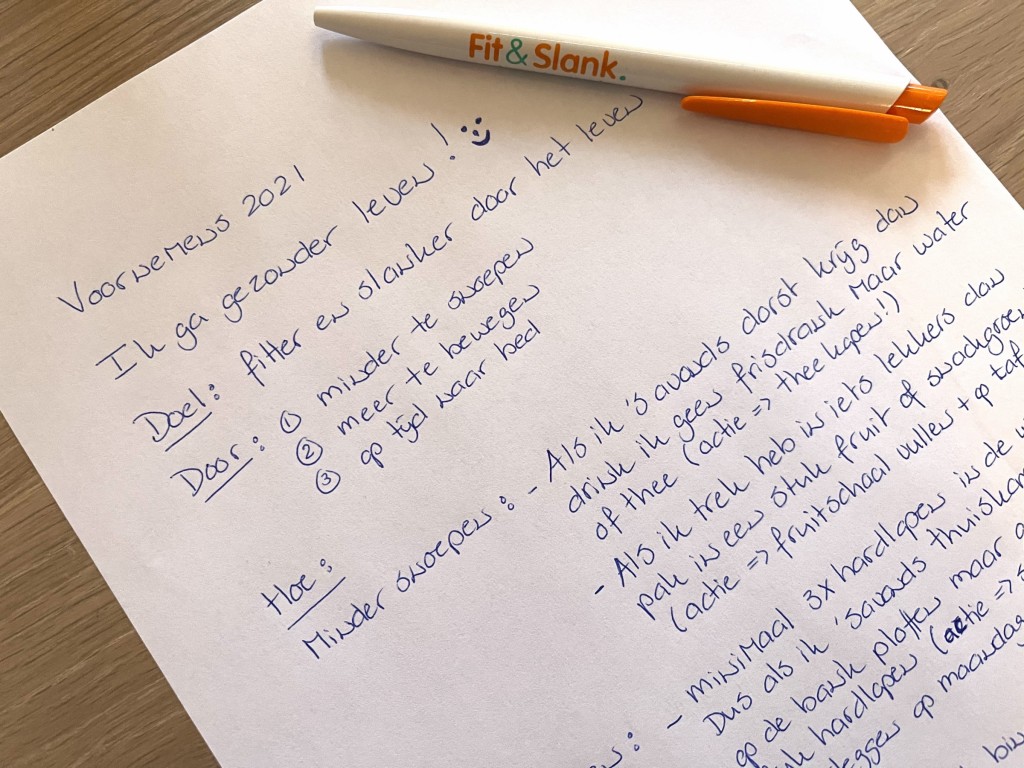 Fit & Slank.
Voornemens 2021
Ik ga gezonder leven!
Doel: fitter en slanker door het leven
Door: ① minder te snoepen
② meer te bewegen
③ op tijd naar bed
Hoe:
Minder snoepen: - Als ik 's avonds dorst krijg dan
drink ik geen frisdrank maar water
of thee (actie => thee kopen!)
- Als ik trek heb in iets lekkers dan
pak in een stuk fruit of snackgroe
(actie => fruitschaal vullen + op taf
- minimaal 3x hardlopen in de
Dus als ik 's avonds thuiskom
op de bank ploffen maar
hardlopen (actie =>
leggen op maandag